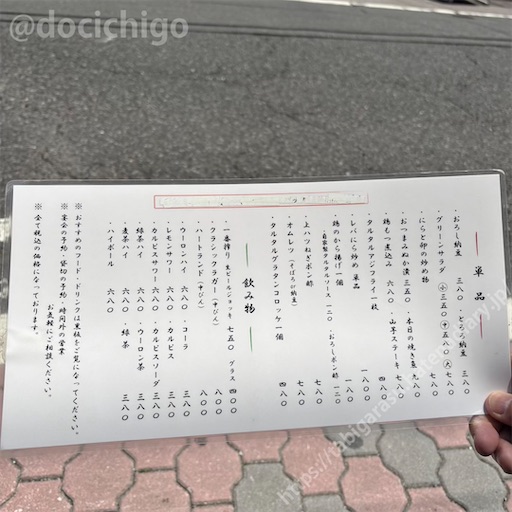 @docichigo
単品
・おろし納豆 三八〇 ・とろろ納豆 三八〇
・グリーンサラダ 小三五〇 中五八〇 大七八〇
・にらと卵の炒め物 七八〇
・おつまみぬか漬 三五〇 ・本日の焼き魚
・鶏もつ煮込み 六八〇 ・山芋ステーキ 七八〇
・タルタルアジフライ一枚
・レバにら炒め 単品
・鶏のから揚げ一個
・自家製タルタルソース 一二〇 ・おろしポン酢 一二〇
・上ハツねぎポン酢 七八〇
・オムレツ(そぼろ or 納豆) 七八〇
・タルタルグラタンコロッケ一個 四八〇
飲み物
・一番搾り 生ビールジョッキ 七五〇 グラス 四〇〇
・クラシックラガー(中びん) 八〇〇
・ハートランド(中びん) 八〇〇
・ウーロンハイ 六八〇 ・コーラ 三八〇
・レモンサワー 六八〇 ・カルピス 三八〇
・カルピスサワー 六八〇 ・カルピスソーダ 三八〇
・緑茶ハイ 六八〇 ・ウーロン茶 三八〇
・麦茶ハイ 六八〇 ・緑茶 三八〇
・ハイボール 六八〇
※おすすめのフード・ドリンクは黒板をご覧になってください。
※宴会の予約・貸切の予約・時間外の営業
お気軽にご相談ください。
※全て税込の価格になっております。